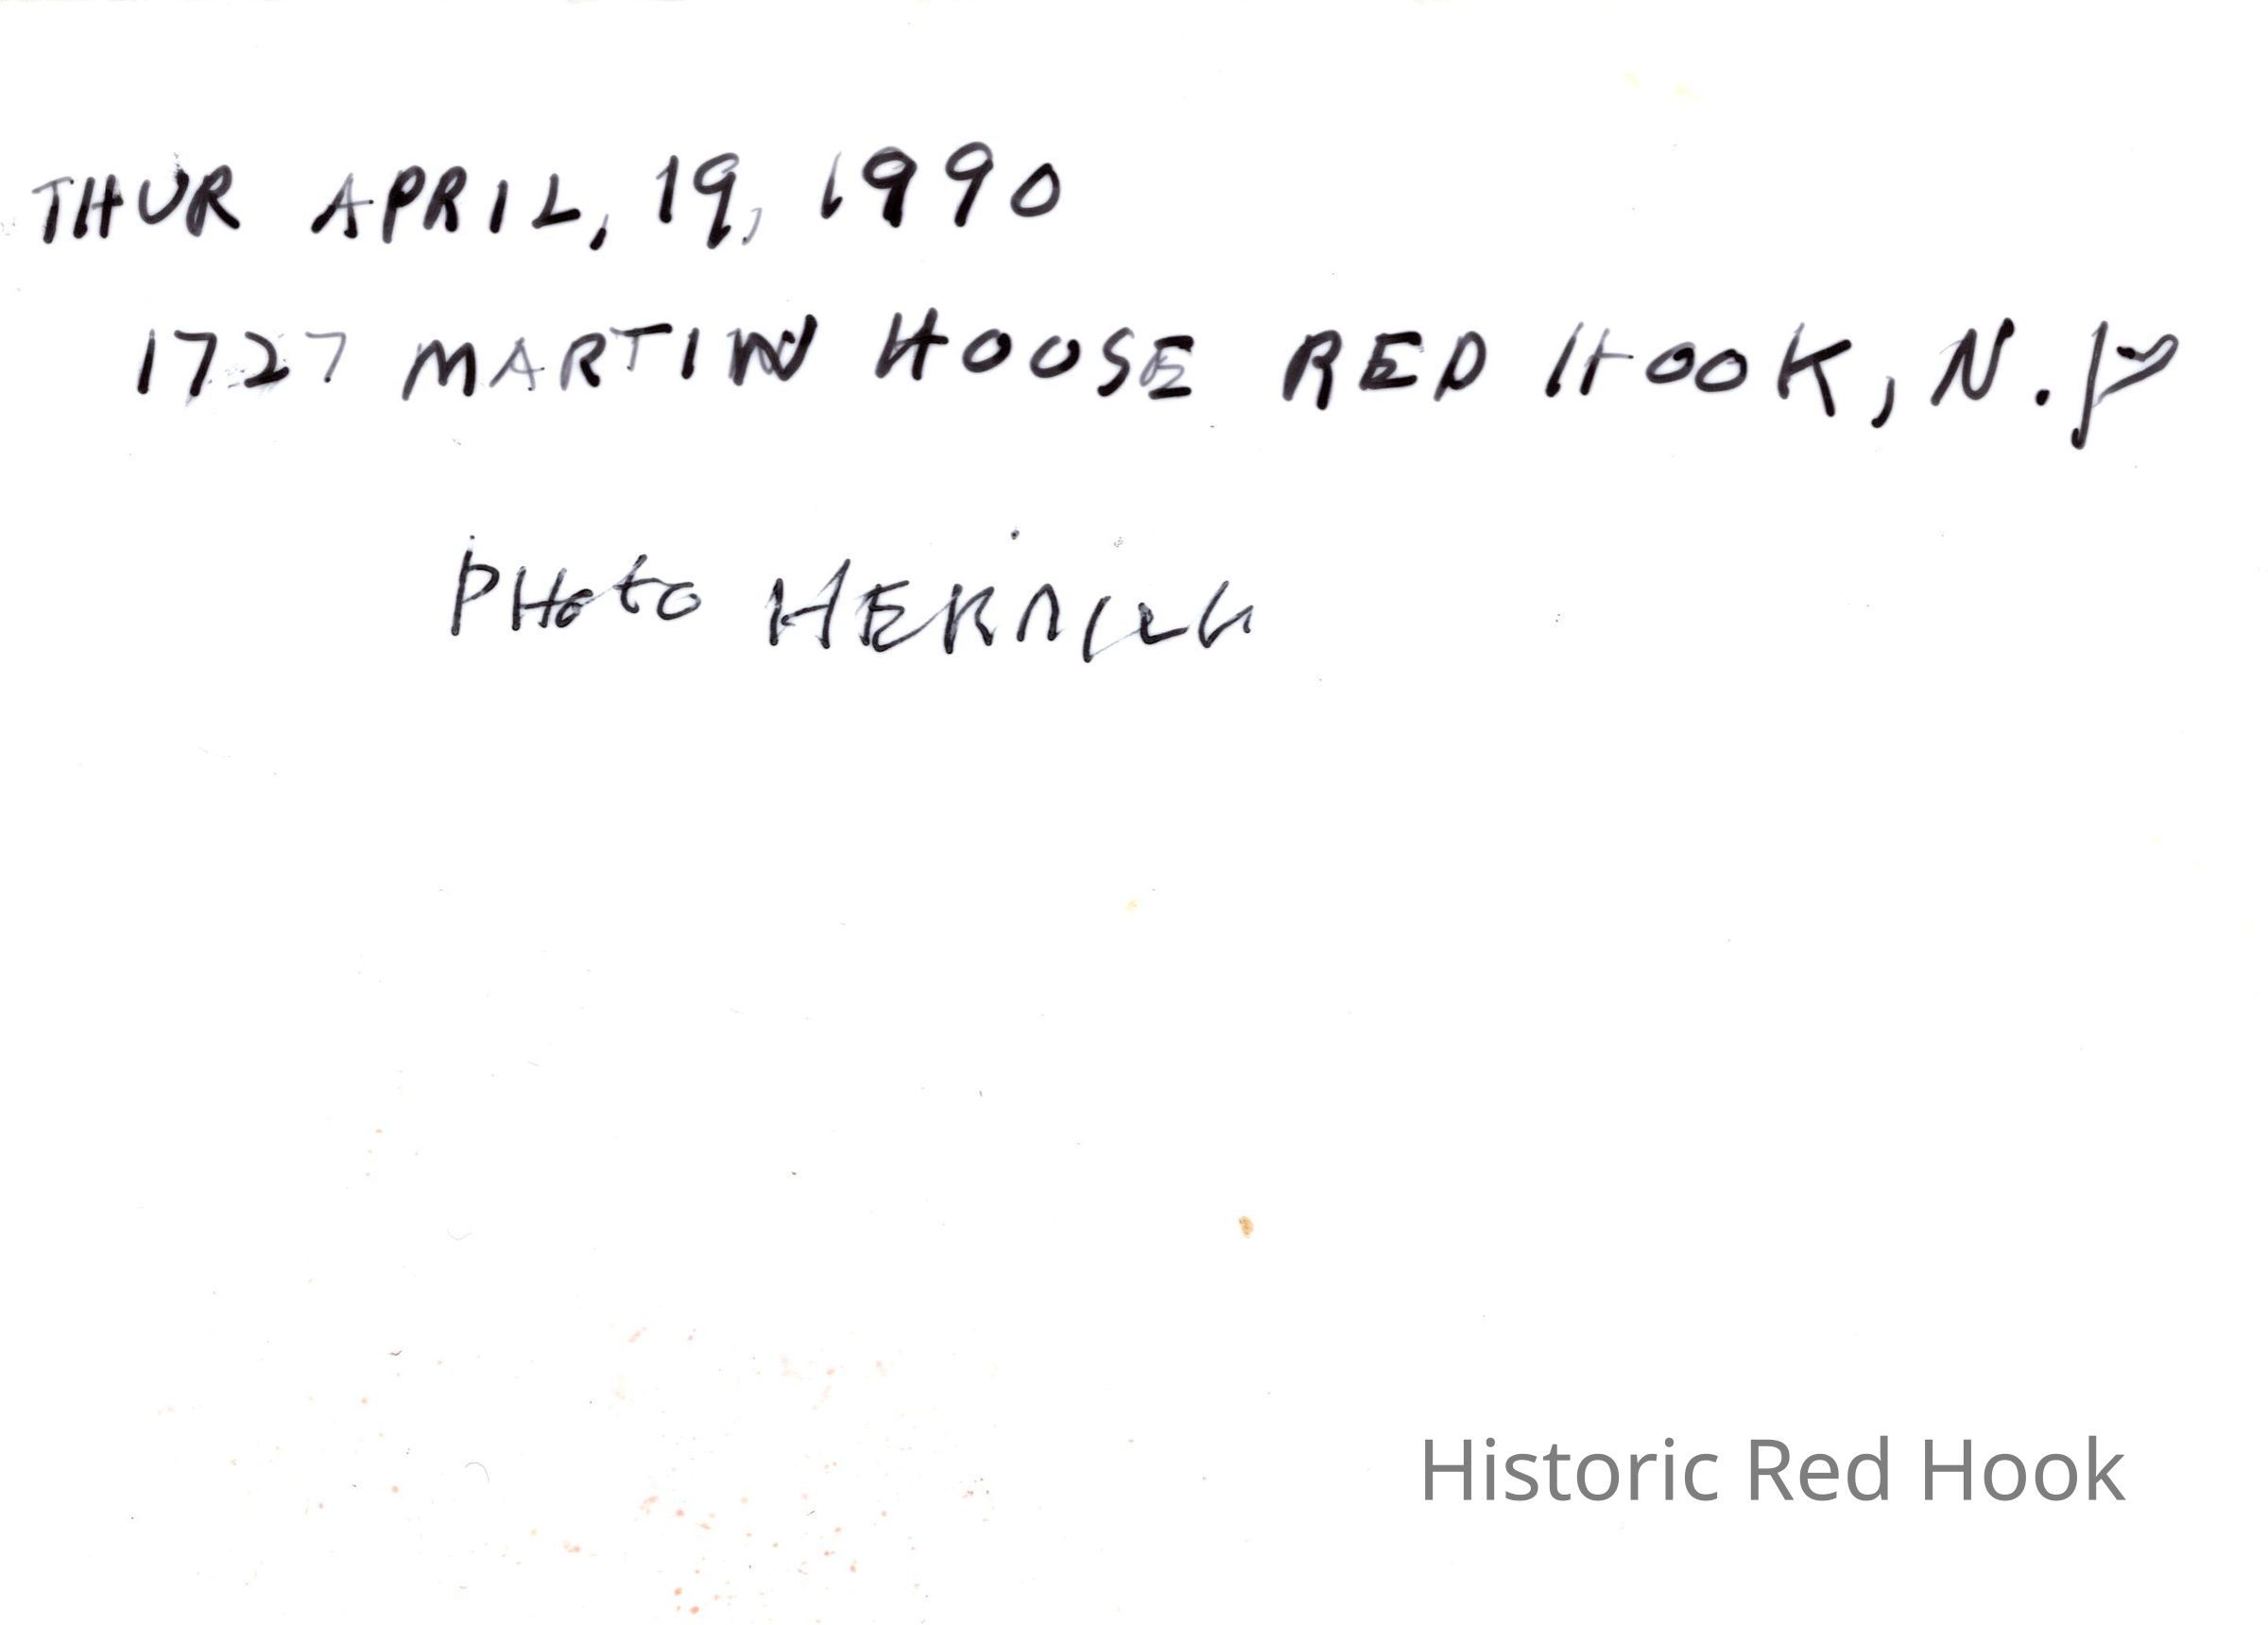 THUR APRIL, 19, 1990
1727 MARTIN HOOSE RED HOOK, N.Y
PHoto
Historic Red Hook